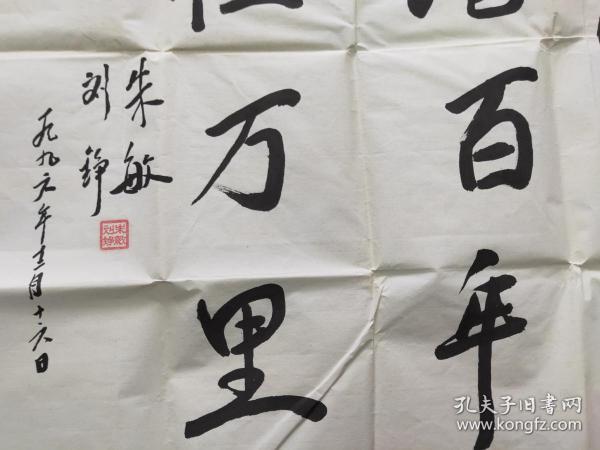 百年
万里
朱敏
刘铮
一九九六年十二月十六日
朱敏
刘铮
孔夫子旧书网
www.kongfz.com